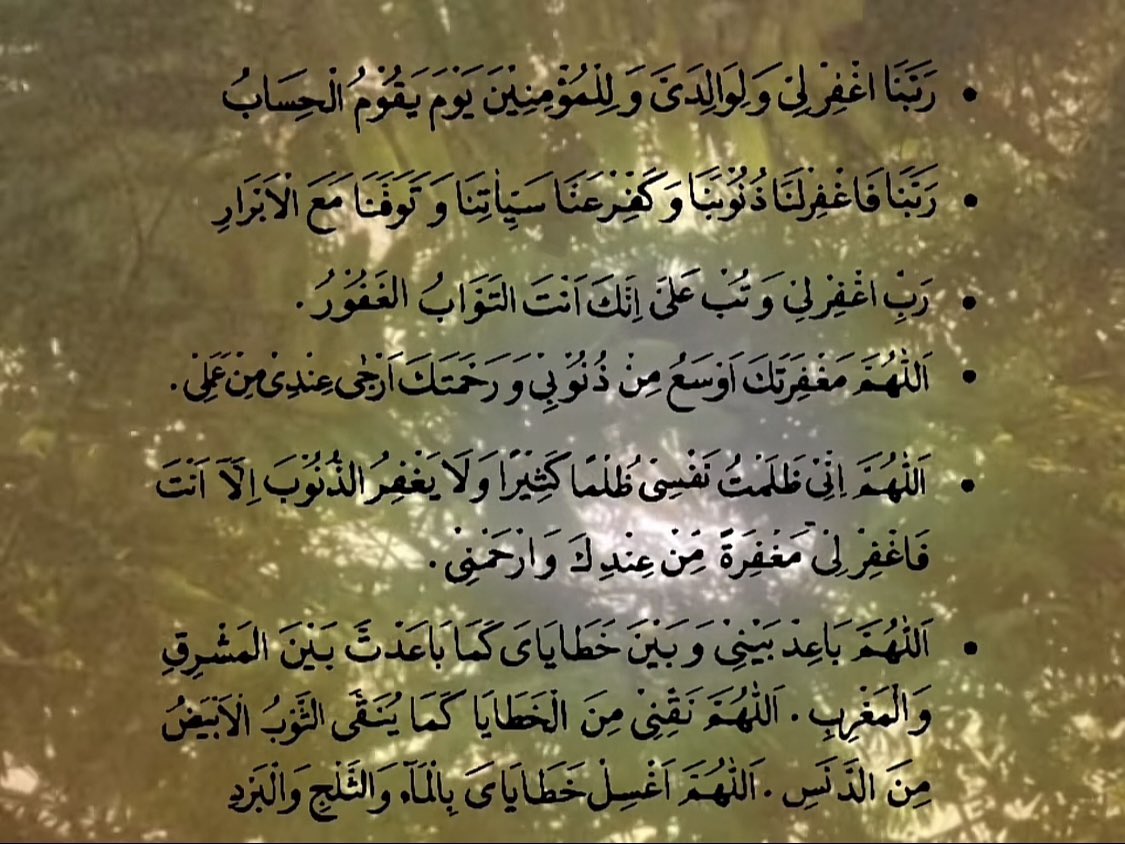 • رَبَّنَا اغْفِرْ لِيْ وَ لِوَالِدَيَّ وَ لِلْمُؤْمِنِيْنَ يَوْمَ يَقُوْمُ الْحِسَابُ
• رَبَّنَا فَاغْفِرْلَنَا ذُنُوْبَنَا وَ كَفِّرْعَنَّا سَيِّاٰتِنَا وَ تَوَفَّنَا مَعَ الْاَبْرَارِ
• رَبِّ اغْفِرْلِيْ وَ تُبْ عَلَيَّ اِنَّكَ اَنْتَ التَّوَّابُ الْغَفُوْرُ .
• اَللّٰهُمَّ مَغْفِرَتُكَ اَوْسَعُ مِنْ ذُنُوْبِيْ وَ رَحْمَتُكَ اَرْجٰى عِنْدِيْ مِنْ عَمَلِيْ .
• اَللّٰهُمَّ اِنِّيْ ظَلَمْتُ نَفْسِيْ ظُلْمًا كَثِيْرًا وَ لَا يَغْفِرُ الذُّنُوْبَ اِلَّآ اَنْتَ
فَاغْفِرْ لِيْ مَغْفِرَةً مِّنْ عِنْدِكَ وَ ارْحَمْنِيْ .
• اَللّٰهُمَّ بَاعِدْ بَيْنِيْ وَ بَيْنَ خَطَايَايَ كَمَا بَاعَدْتَّ بَيْنَ الْمَشْرِقِ
وَالْمَغْرِبِ . اَللّٰهُمَّ نَقِّنِيْ مِنَ الْخَطَايَا كَمَا يُنَقَّى الثَّوْبُ الْاَبْيَضُ
مِنَ الدَّنَسِ . اَللّٰهُمَّ اغْسِلْ خَطَايَايَ بِالْمَآءِ وَالثَّلْجِ وَالْبَرَدِ